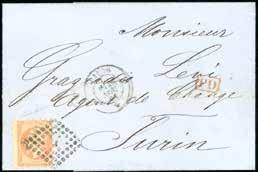 Monsieur
Graziadio Lévi
PD
Agent de Change
Turin